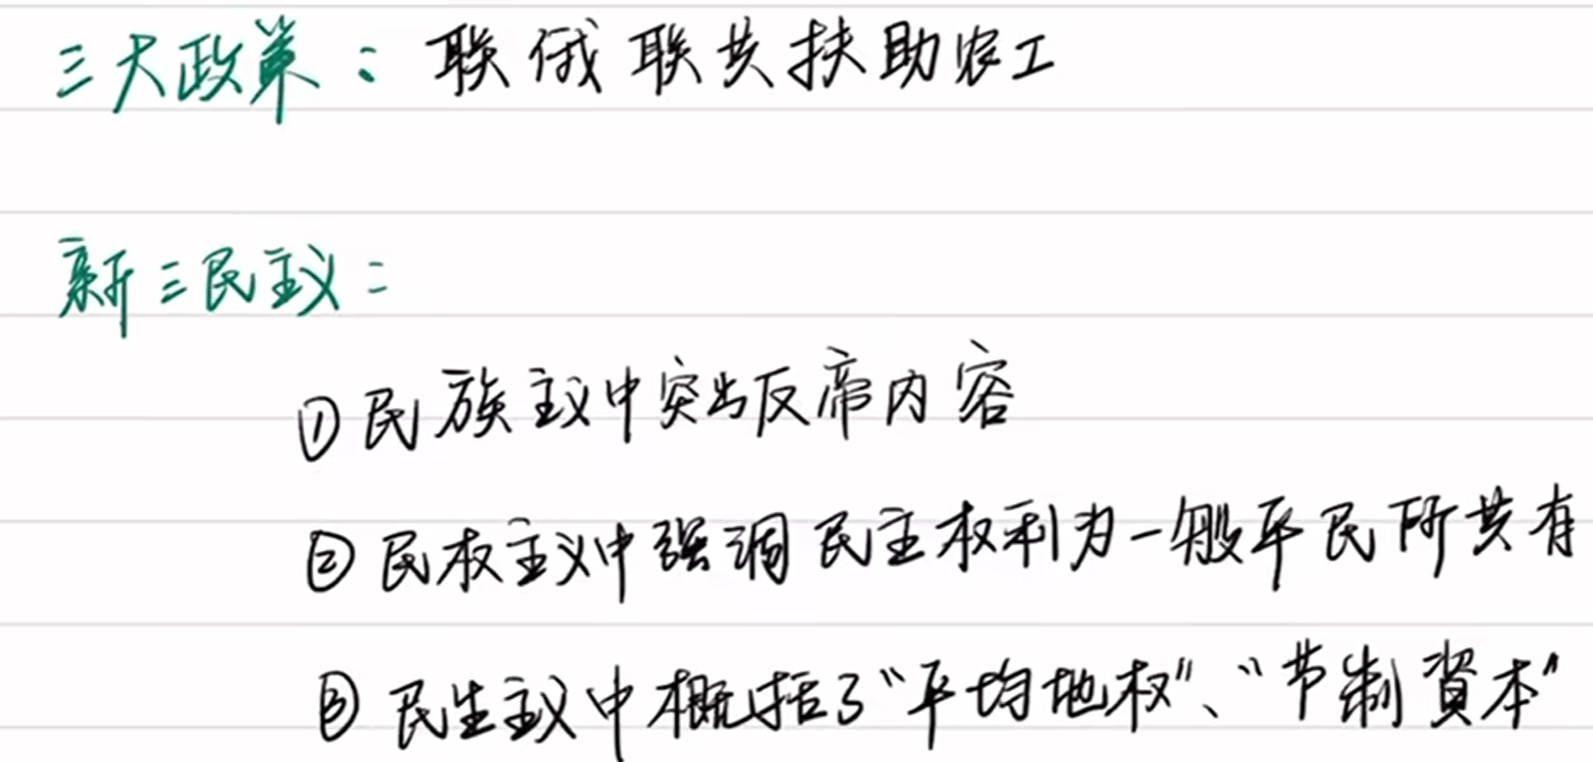 三大政策：联俄联共扶助农工
新三民主义：
①民族主义中突出反帝内容
②民权主义中强调民主权利为一般平民所共有
③民生主义中概括了“平均地权”、“节制資本”